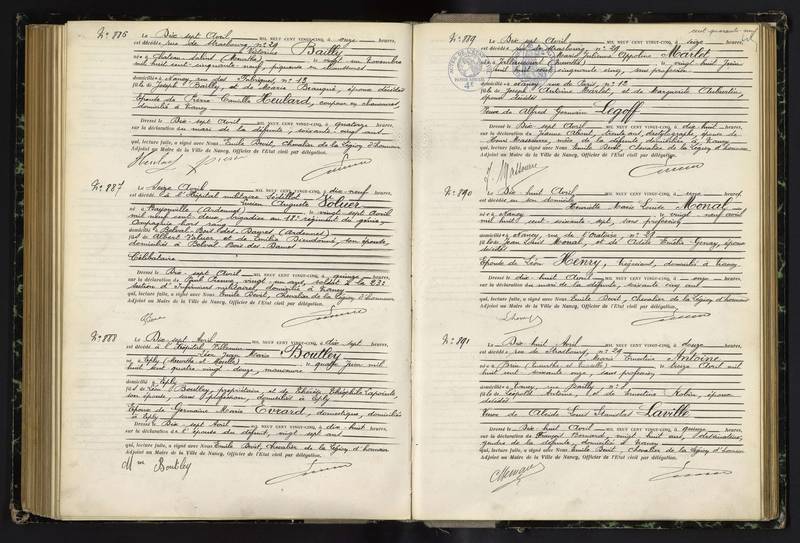 N° 886
Le Dix sept Avril MIL NEUF CENT VINGT-CINQ, à onze heures,
est décédée, rue de Strasbourg, n° 29
Victorine Bailly
née à Château-Salins (Moselle) le vingt un Novembre
mil huit cent cinquante neuf,
domiciliée à Nancy, rue des Fabriques, n° 13
fille de Joseph Bailly, et de Marie décédés
Epouse de Pierre Camille Heulard,
domicilié à Nancy
Dressé le Dix sept Avril MIL NEUF CENT VINGT-CINQ, à quatorze heures,
sur la déclaration du mari de la défunte, soixante vingt ans
qui, lecture faite, a signé avec Nous, Emile Boët, Chevalier de la Légion d'honneur
Adjoint au Maire de la Ville de Nancy, Officier de l'Etat civil par délégation.
N° 887
Le Seize Avril MIL NEUF CENT VINGT-CINQ, à dix neuf heures,
est décédé, à l'Hôpital militaire Sédillot
Auguste
né à (Ardennes) le vingt sept Avril
mil neuf cent deux, brigadier au 18e régiment de génie,
Compagnie hors rang
domicilié à Belval-Bois des Dames (Ardennes)
fils de Albert et de Emilia Dieudonné, son épouse,
domiciliés à Belval Bois des Dames
Célibataire
Dressé le Dix sept Avril MIL NEUF CENT VINGT-CINQ, à quinze heures,
sur la déclaration de Paul vingt un ans, soldat à la 23e
section d'Infirmiers militaires, domicilié à Nancy
qui, lecture faite, a signé avec Nous Emile Boët, Chevalier de la Légion d'honneur
Adjoint au Maire de la Ville de Nancy, Officier de l'Etat civil par délégation.
N° 888
Le Dix sept Avril MIL NEUF CENT VINGT-CINQ, à dix sept heures,
est décédé, à l'Hôpital Villemin
Léon Jean Marie Boutley
né à Eply (Meurthe et Moselle) le quatre Juin mil
huit cent quatre vingt douze, manoeuvre
domicilié à Eply
fils de Léon Boutley, propriétaire, et de Thérèse Théophile Lapointe,
son épouse, sans profession, domiciliés à Eply
Epoux de Germaine Marie Evrard, domestique, domiciliée
à Eply
Dressé le Dix sept Avril MIL NEUF CENT VINGT-CINQ, à dix huit heures,
sur la déclaration de l'épouse du défunt, vingt sept ans
qui, lecture faite, a signé avec Nous Emile Boët, Chevalier de la Légion d'honneur
Adjoint au Maire de la Ville de Nancy, Officier de l'Etat civil par délégation.
Mme Boutley
N° 889
Le Dix sept Avril MIL NEUF CENT VINGT-CINQ, à seize heures,
est décédée, rue de Strasbourg, n° 29
Marie Julienne Appoline Marlet
née à le vingt huit Juin
mil huit cent cinquante cinq, sans profession
domiciliée à Nancy, rue de Paris, n° 12
fille de Joseph Antoine Marlet, et de Marguerite Aubertin,
époux décédés
Veuve de Alfred Germain Legoff
Dressé le Dix sept Avril MIL NEUF CENT VINGT-CINQ, à dix huit heures,
sur la déclaration de Jeanne trente ans, dactylographe, épouse de
Massenne, nièce de la défunte, domiciliée à Nancy
qui, lecture faite, a signé avec Nous Emile Boët, Chevalier de la Légion d'honneur
Adjoint au Maire de la Ville de Nancy, Officier de l'Etat civil par délégation.
J. Massenne
N° 890
Le Dix huit Avril MIL NEUF CENT VINGT-CINQ, à onze heures
est décédée, en son domicile
Henriette Marie Louise Monal
née à Nancy le vingt neuf Avril
mil huit cent soixante sept, sans profession
domiciliée à Nancy, rue de l'Oratoire, n° 29
fille de Jean Louis Monal, et de Adèle Emélie Genay, époux
décédés
Epouse de Léon Henry, négociant, domicilié à Nancy
Dressé le dix huit Avril MIL NEUF CENT VINGT-CINQ, à onze heures,
sur la déclaration du mari de la défunte, soixante cinq ans
qui, lecture faite, a signé avec Nous Emile Boët, Chevalier de la Légion d'honneur
Adjoint au Maire de la Ville de Nancy, Officier de l'Etat civil par délégation.
N° 891
Le Dix huit Avril MIL NEUF CENT VINGT-CINQ, à douze heures,
est décédée, rue de Strasbourg, n° 29
Marie Ernestine Antoine
née à Brin (Meurthe et Moselle) le treize Avril mil
huit cent soixante onze, sans profession
domiciliée à Nancy, rue Bailly, n° 1
fille de Léopold Antoine, et de Ernestine Robin, époux
décédés
Veuve de Alcide Louis Stanislas Laville
Dressé le Dix huit Avril MIL NEUF CENT VINGT-CINQ, à quinze heures,
sur la déclaration de François vingt huit ans,
gendre de la défunte, domicilié à Nancy
qui, lecture faite, a signé avec Nous Emile Boët, Chevalier de la Légion d'honneur
Adjoint au Maire de la Ville de Nancy, Officier de l'Etat civil par délégation.